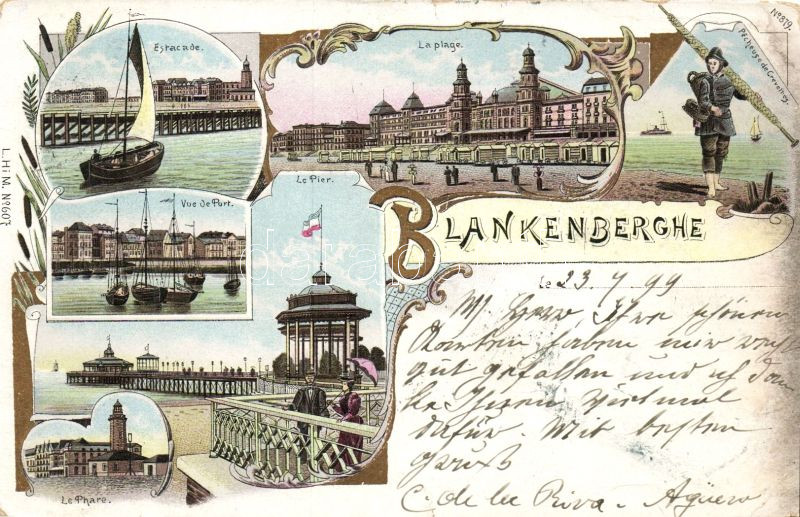 Estacade.
La plage.
No 879.
Pêcheuse de Crevettes.
L.H.i.M. No 607.
Vue de Port.
Le Pier.
BLANKENBERGHE
le 23. 7 99
M. Herr, Ihre schönen
Karten haben mir recht
gut gefallen und ich dan-
ke Ihnen vielmal
dafür. Mit besten
Gruß
C. de la Riva - Agüero
Le Phare.